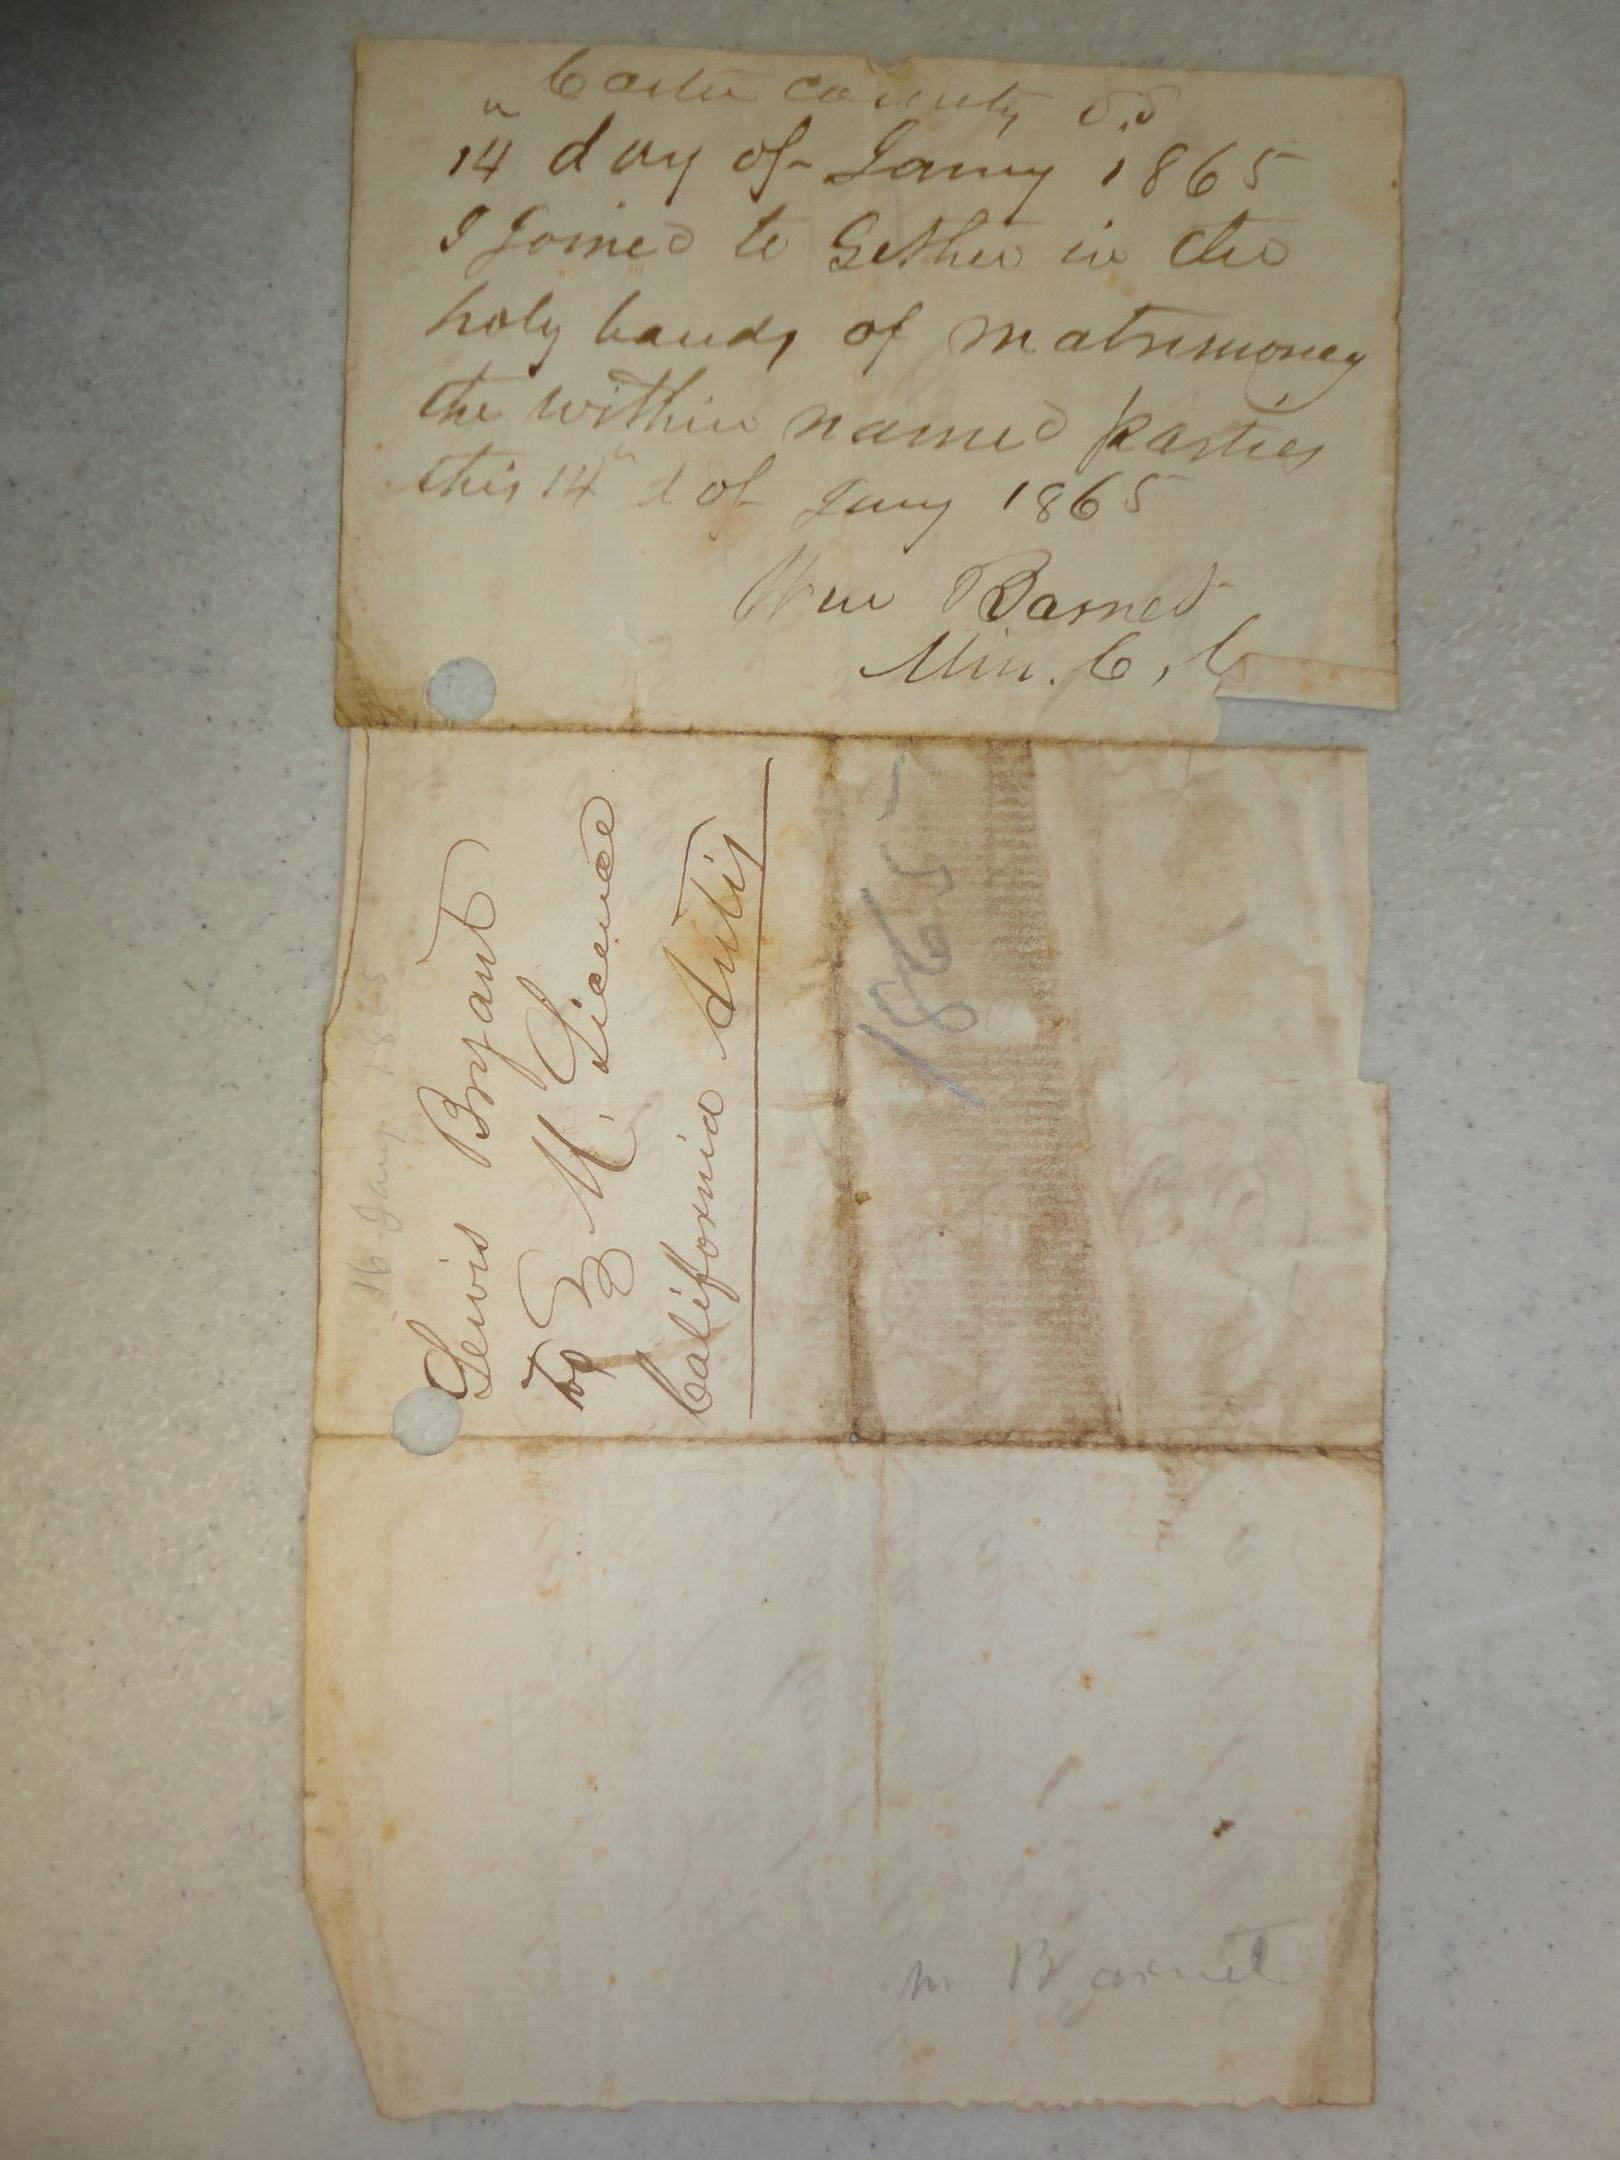 Carter county SS
14" day of Jany 1865
I Joined to Gether in the
holy bands of matrimoney
the within named parties
this 14" d of Jany 1865
Wm Barnet
Min. C, C
16 Jany 1865
Lewis Bryant
To } M. Licence
California
1865
m Barnet